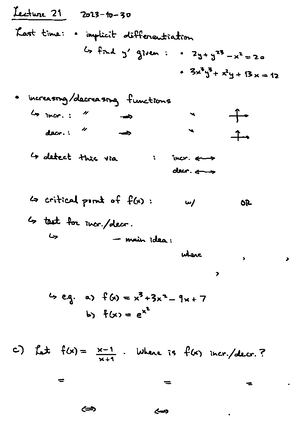 Lecture 21 2023-10-30
Last time: • implicit differentiation
↳ find y' given: • 2y + y²³ - x² = 20
• 3x³y³ + x²y + 13x = 12
• increasing/decreasing functions
↳ incr.: " ⇒ "
decr.: " ⇒ "
↳ detect this via : incr. ↔
decr. ↔
↳ critical point of f(x): w/ OR
↳ test for incr./decr.
↳ — main idea:
where , ,
,
↳ e.g. a) f(x) = x³ + 3x² - 9x + 7
b) f(x) = e^{x²}
c) Let f(x) = \frac{x-1}{x+1}. Where is f(x) incr./decr.?
= = = .
⇔ ⇔ .